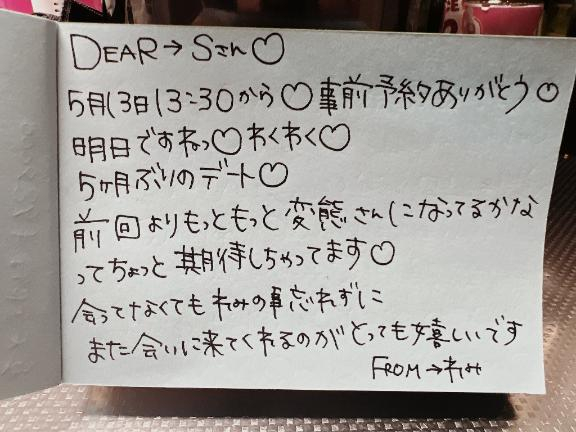 DEAR→Sさん♡
5月13日13:30から♡事前予約ありがとう♡
明日ですねっ♡わくわく♡
5ヶ月ぶりのデート♡
前回よりもっともっと変態さんになってるかな
ってちょっと期待しちゃってます♡
会ってなくてもれみの事忘れずに
また会いに来てくれるのがとっても嬉しいです
FROM→れみ